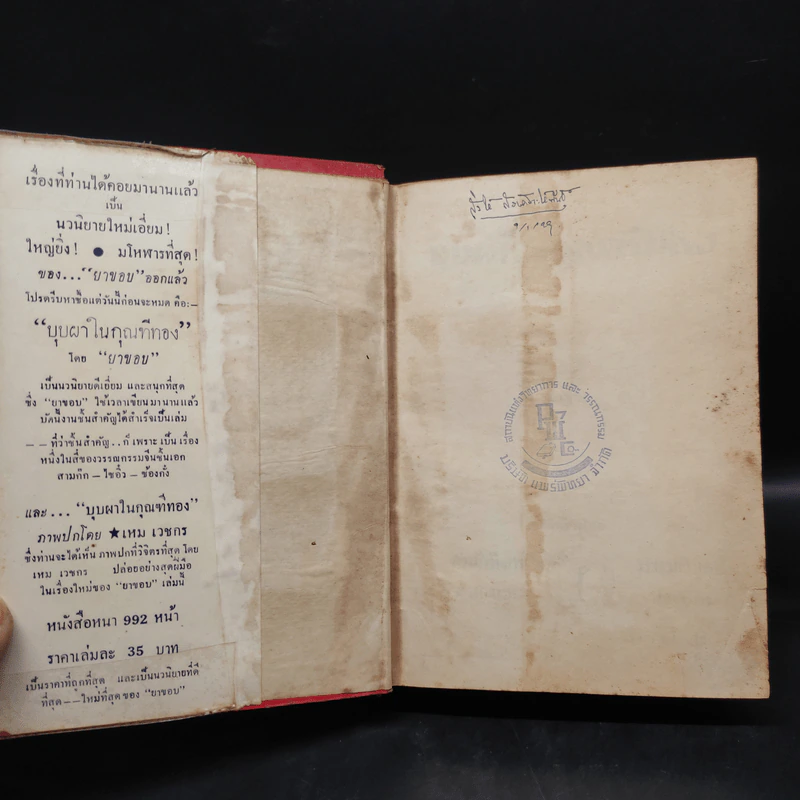 เรื่องที่ท่านได้คอยมานานแล้ว
เป็น
นวนิยายใหม่เอี่ยม!
ใหญ่ยิ่ง! ● มโหฬารที่สุด!
ของ...“ยาขอบ” ออกแล้ว
โปรดรีบหาซื้อแต่วันนี้ก่อนจะหมด คือ:–
“บุบผาในกุณฑีทอง”
โดย “ยาขอบ”
เป็นนวนิยายดีเยี่ยม และสนุกที่สุด
ซึ่ง “ยาขอบ” ใช้เวลาเขียนมานานแล้ว
บัดนี้งานชิ้นสำคัญได้สำเร็จเป็นเล่ม
– – ที่ว่าชิ้นสำคัญ..ก็เพราะเป็นเรื่อง
หนึ่งในสี่ของวรรณกรรมจีนชั้นเอก
สามก๊ก – ไซอิ๋ว – ซ้องกั๋ง
และ... “บุบผาในกุณฑีทอง”
ภาพปกโดย ★เหม เวชกร
ซึ่งท่านจะได้เห็น ภาพปกที่วิจิตรที่สุด โดย
เหม เวชกร ปล่อยอย่างสุดฝีมือ
ในเรื่องใหม่ของ “ยาขอบ” เล่มนี้
หนังสือหนา 992 หน้า
ราคาเล่มละ 35 บาท
เป็นราคาที่ถูกที่สุด และเป็นนวนิยายที่ดี
ที่สุด––ใหม่ที่สุดของ “ยาขอบ”
สถาบันแห่งวิทยาการ และ วรรณกรรม
บริษัท แพร่พิทยา จำกัด